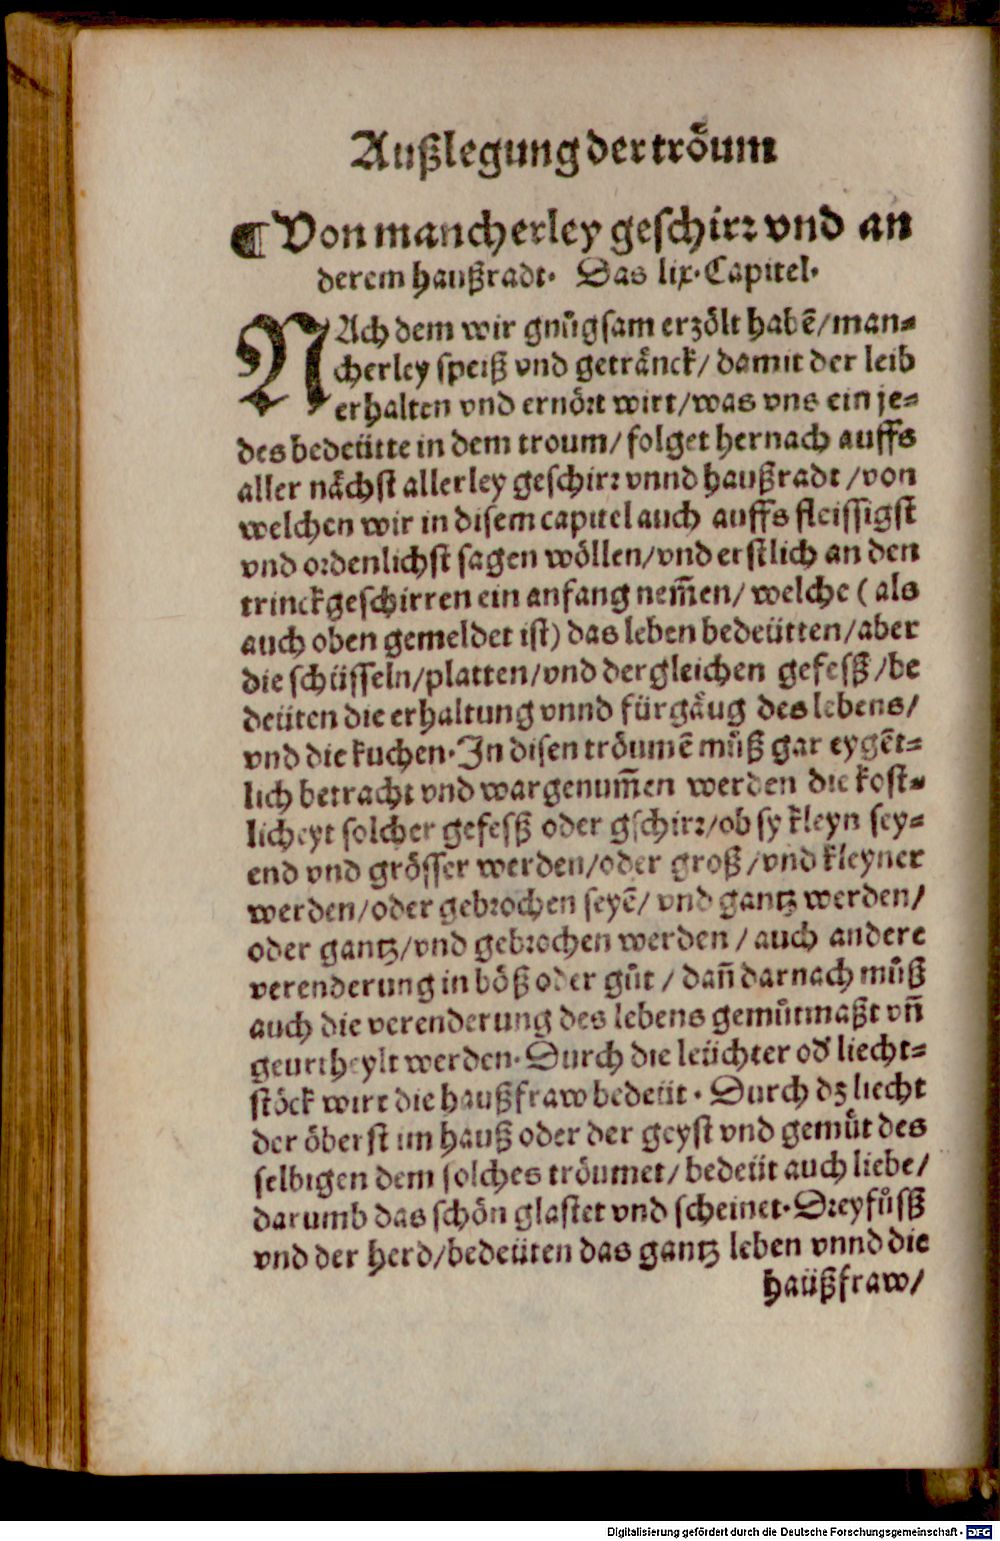 Außlegung der tröum
¶ Von mancherley geschirr vnd an
derem haußradt. Das lix. Capitel.
NAch dem wir gnůgsam erzölt habē/man-
cherley speiß vnd getränck/ damit der leib
erhalten vnd ernört wirt/was vns ein je-
des bedeütte in dem troum/ folget hernach auffs
aller nächst allerley geschirr vnnd haußradt /von
welchen wir in disem capitel auch auffs fleissigst
vnd ordenlichst sagen wöllen/vnd erstlich an den
trinckgeschirren ein anfang nem̃en/ welche ( als
auch oben gemeldet ist) das leben bedeütten/aber
die schüsseln/platten/vnd dergleichen gefesß /be
deüten die erhaltung vnnd fürgäug des lebens/
vnd die kuchen. In disen tröumē můß gar eygēt-
lich betracht vnd wargenum̃en werden die kost-
licheyt solcher gefesß oder gschirr/ob sy kleyn sey-
end vnd grösser werden/oder groß /vnd kleyner
werden/oder gebrochen seyē/ vnd gantz werden/
oder gantz/vnd gebrochen werden / auch andere
verenderung in böß oder gůt / dañ darnach můß
auch die verenderung des lebens gemůtmaßt vñ
geurtheylt werden. Durch die leüchter od' liecht-
stöck wirt die haußfraw bedeüt. Durch dz liecht
der öberst im hauß oder der geyst vnd gemůt des
selbigen dem solches tröumet/ bedeüt auch liebe/
darumb das schön glastet vnd scheinet. Dreyfůsß
vnd der herd/bedeüten das gantz leben vnnd die
haüßfraw/
Digitalisierung gefördert durch die Deutsche Forschungsgemeinschaft - DFG